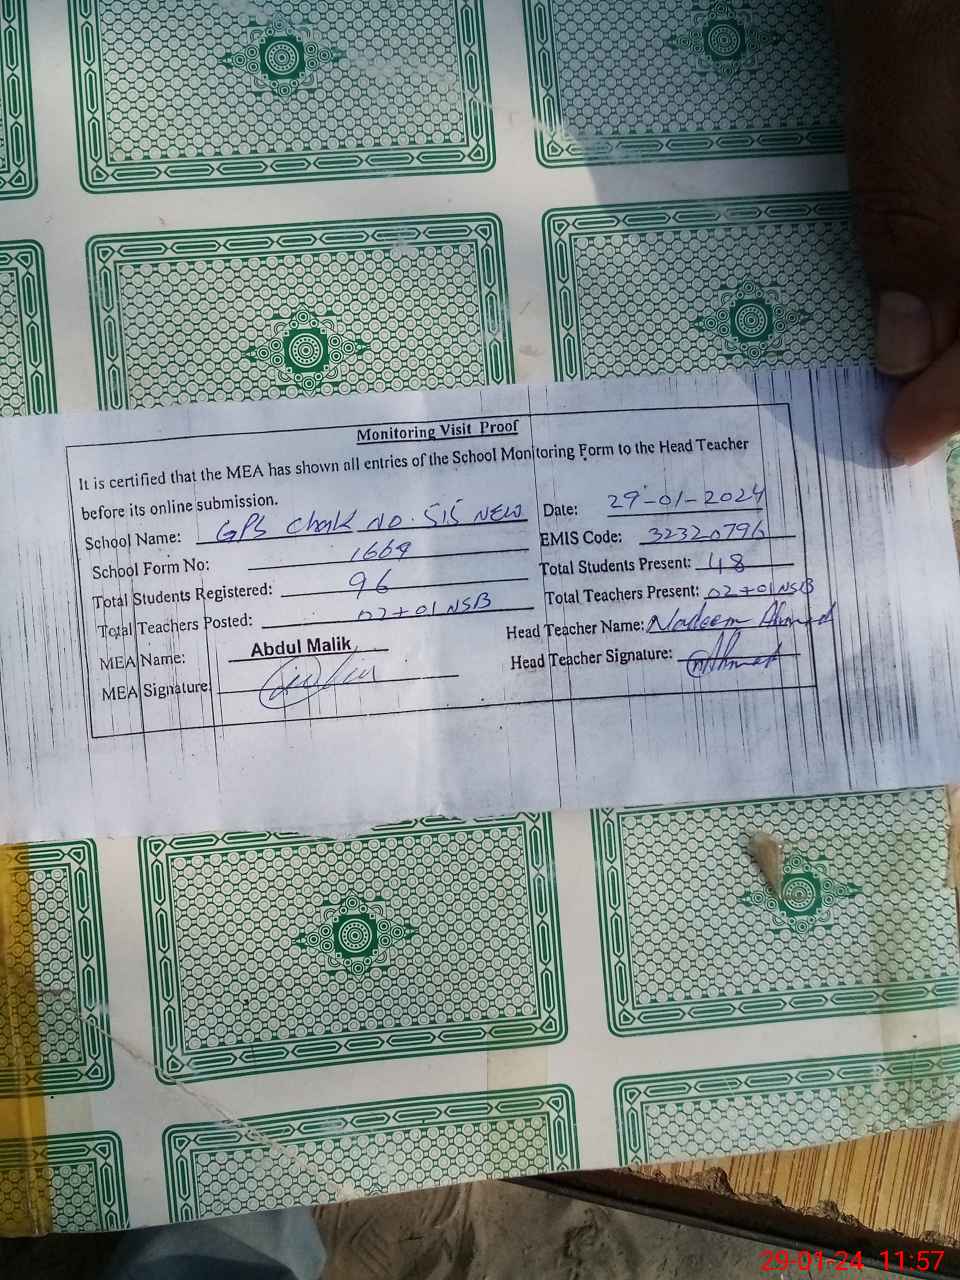 Monitoring Visit Proof
It is certified that the MEA has shown all entries of the School Monitoring Form to the Head Teacher
before its online submission.
Date: 29-01-2024
School Name: GPS Chak No. 515 NEW
EMIS Code: 32320796
School Form No: 1669
Total Students Present: 48
Total Students Registered: 96
Total Teachers Present: 02+01 NSB
Total Teachers Posted: 02+01 NSB
Head Teacher Name: Nadeem Ahmad
MEA Name: Abdul Malik
Head Teacher Signature:
MEA Signature:
29-01-24 11:57